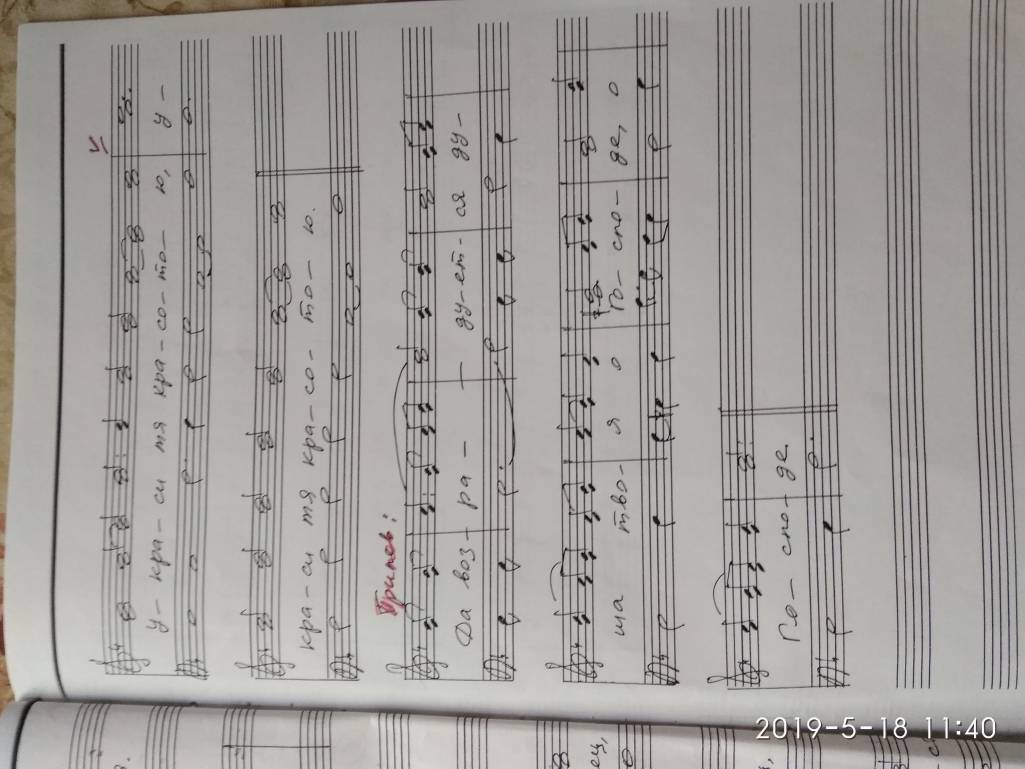 У-кра-си тя кра-со-то-ю, у-
кра-си тя кра-со-то-ю.
Припев:
Да воз-ра-ду-ет-ся ду-
ша тво-я о Го-спо-де, о
Го-спо-де
2019-5-18 11:40